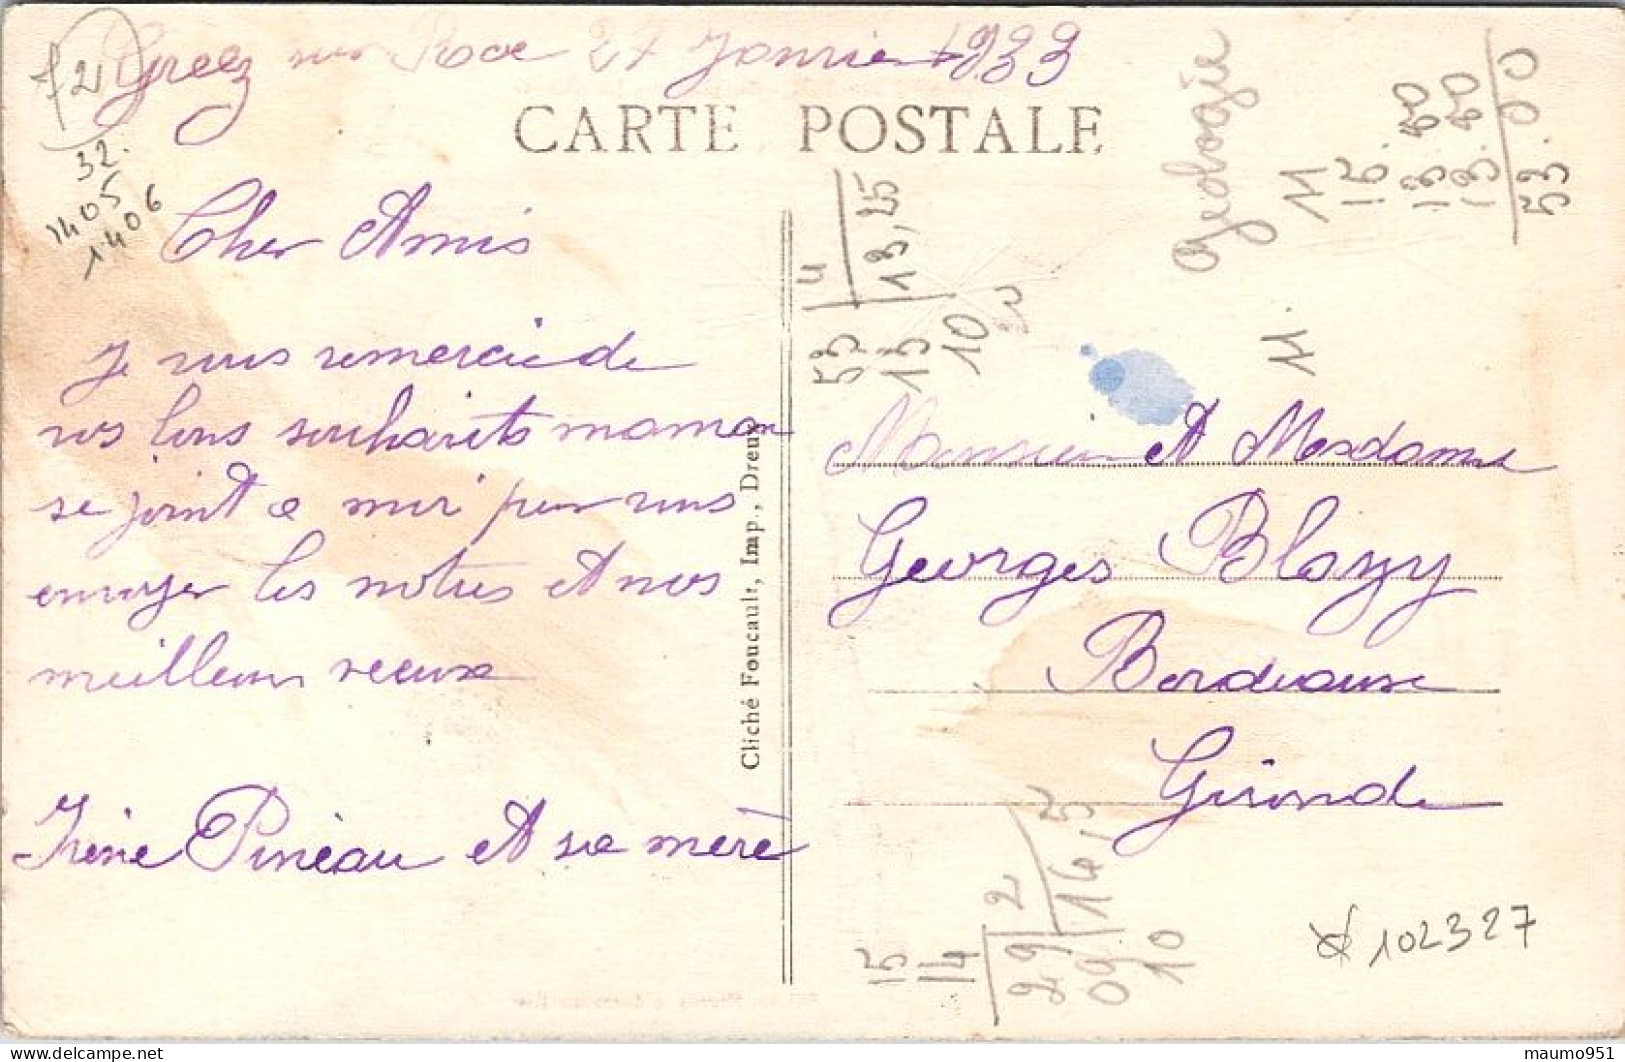 Greez sur Roce 27 Janvier 1933
CARTE POSTALE
32.
1405
1406
Cher Amis
Je vous remercie de
vos bons souhaits maman
se joint a moi pour vous
envoyer les notres et nos
meilleurs veeux
Irène Pineau et sa mère
Cliché Foucault, Imp., Dreux
Monsieur et Mesdame
Georges Blazy
Bordeaux
Gironde
Geologie
11
15.
13.40
13.40
53.
11.
53 4
13 13,25
10
20
15
14
29 2
09 14,5
10
102327
maumo951